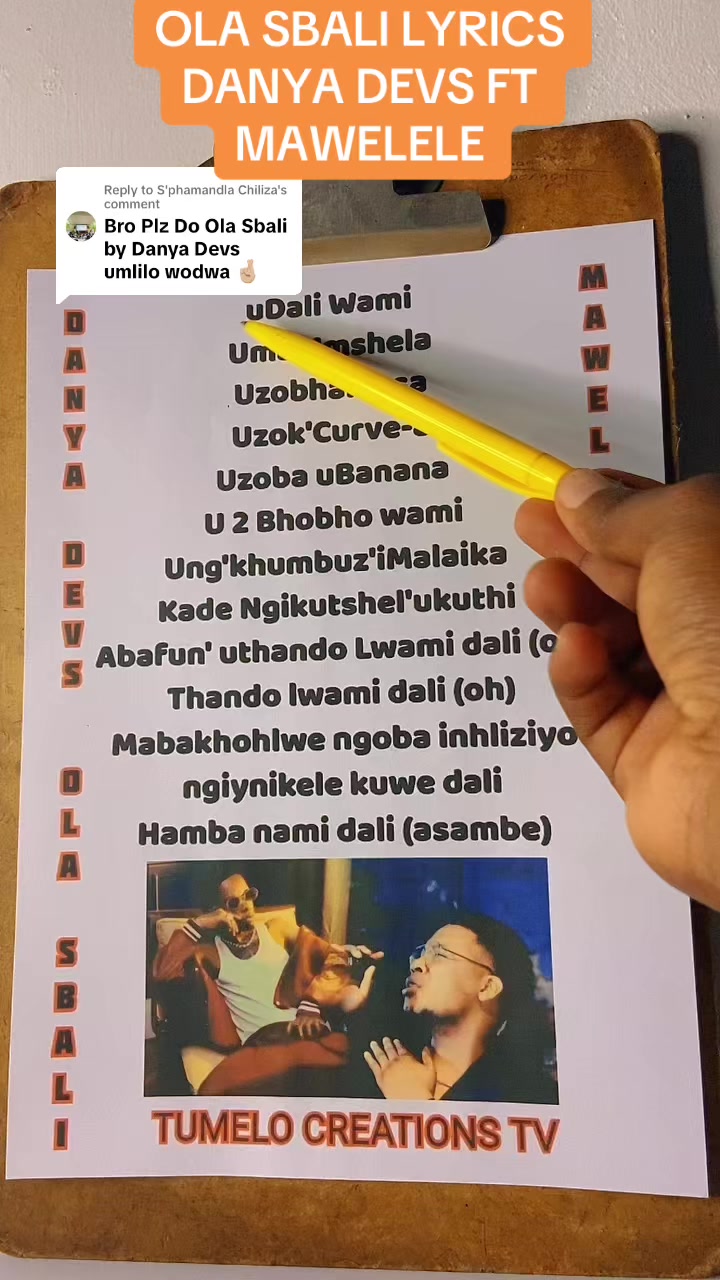 OLA SBALI LYRICS
DANYA DEVS FT
MAWELELE
Reply to S'phamandla Chiliza's
comment
Bro Plz Do Ola Sbali
by Danya Devs
umlilo wodwa 🤞🏼
uDali Wami
Uzoba uBanana
U 2 Bhobho wami
Ung'khumbuz'iMalaika
Kade Ngikutshel'ukuthi
Abafun' uthando Lwami dali
Thando lwami dali (oh)
Mabakhohlwe ngoba inhliziyo
ngiynikele kuwe dali
Hamba nami dali (asambe)
DANYA
DEVS
OLA
SBALI
MAWEL
TUMELO CREATIONS TV